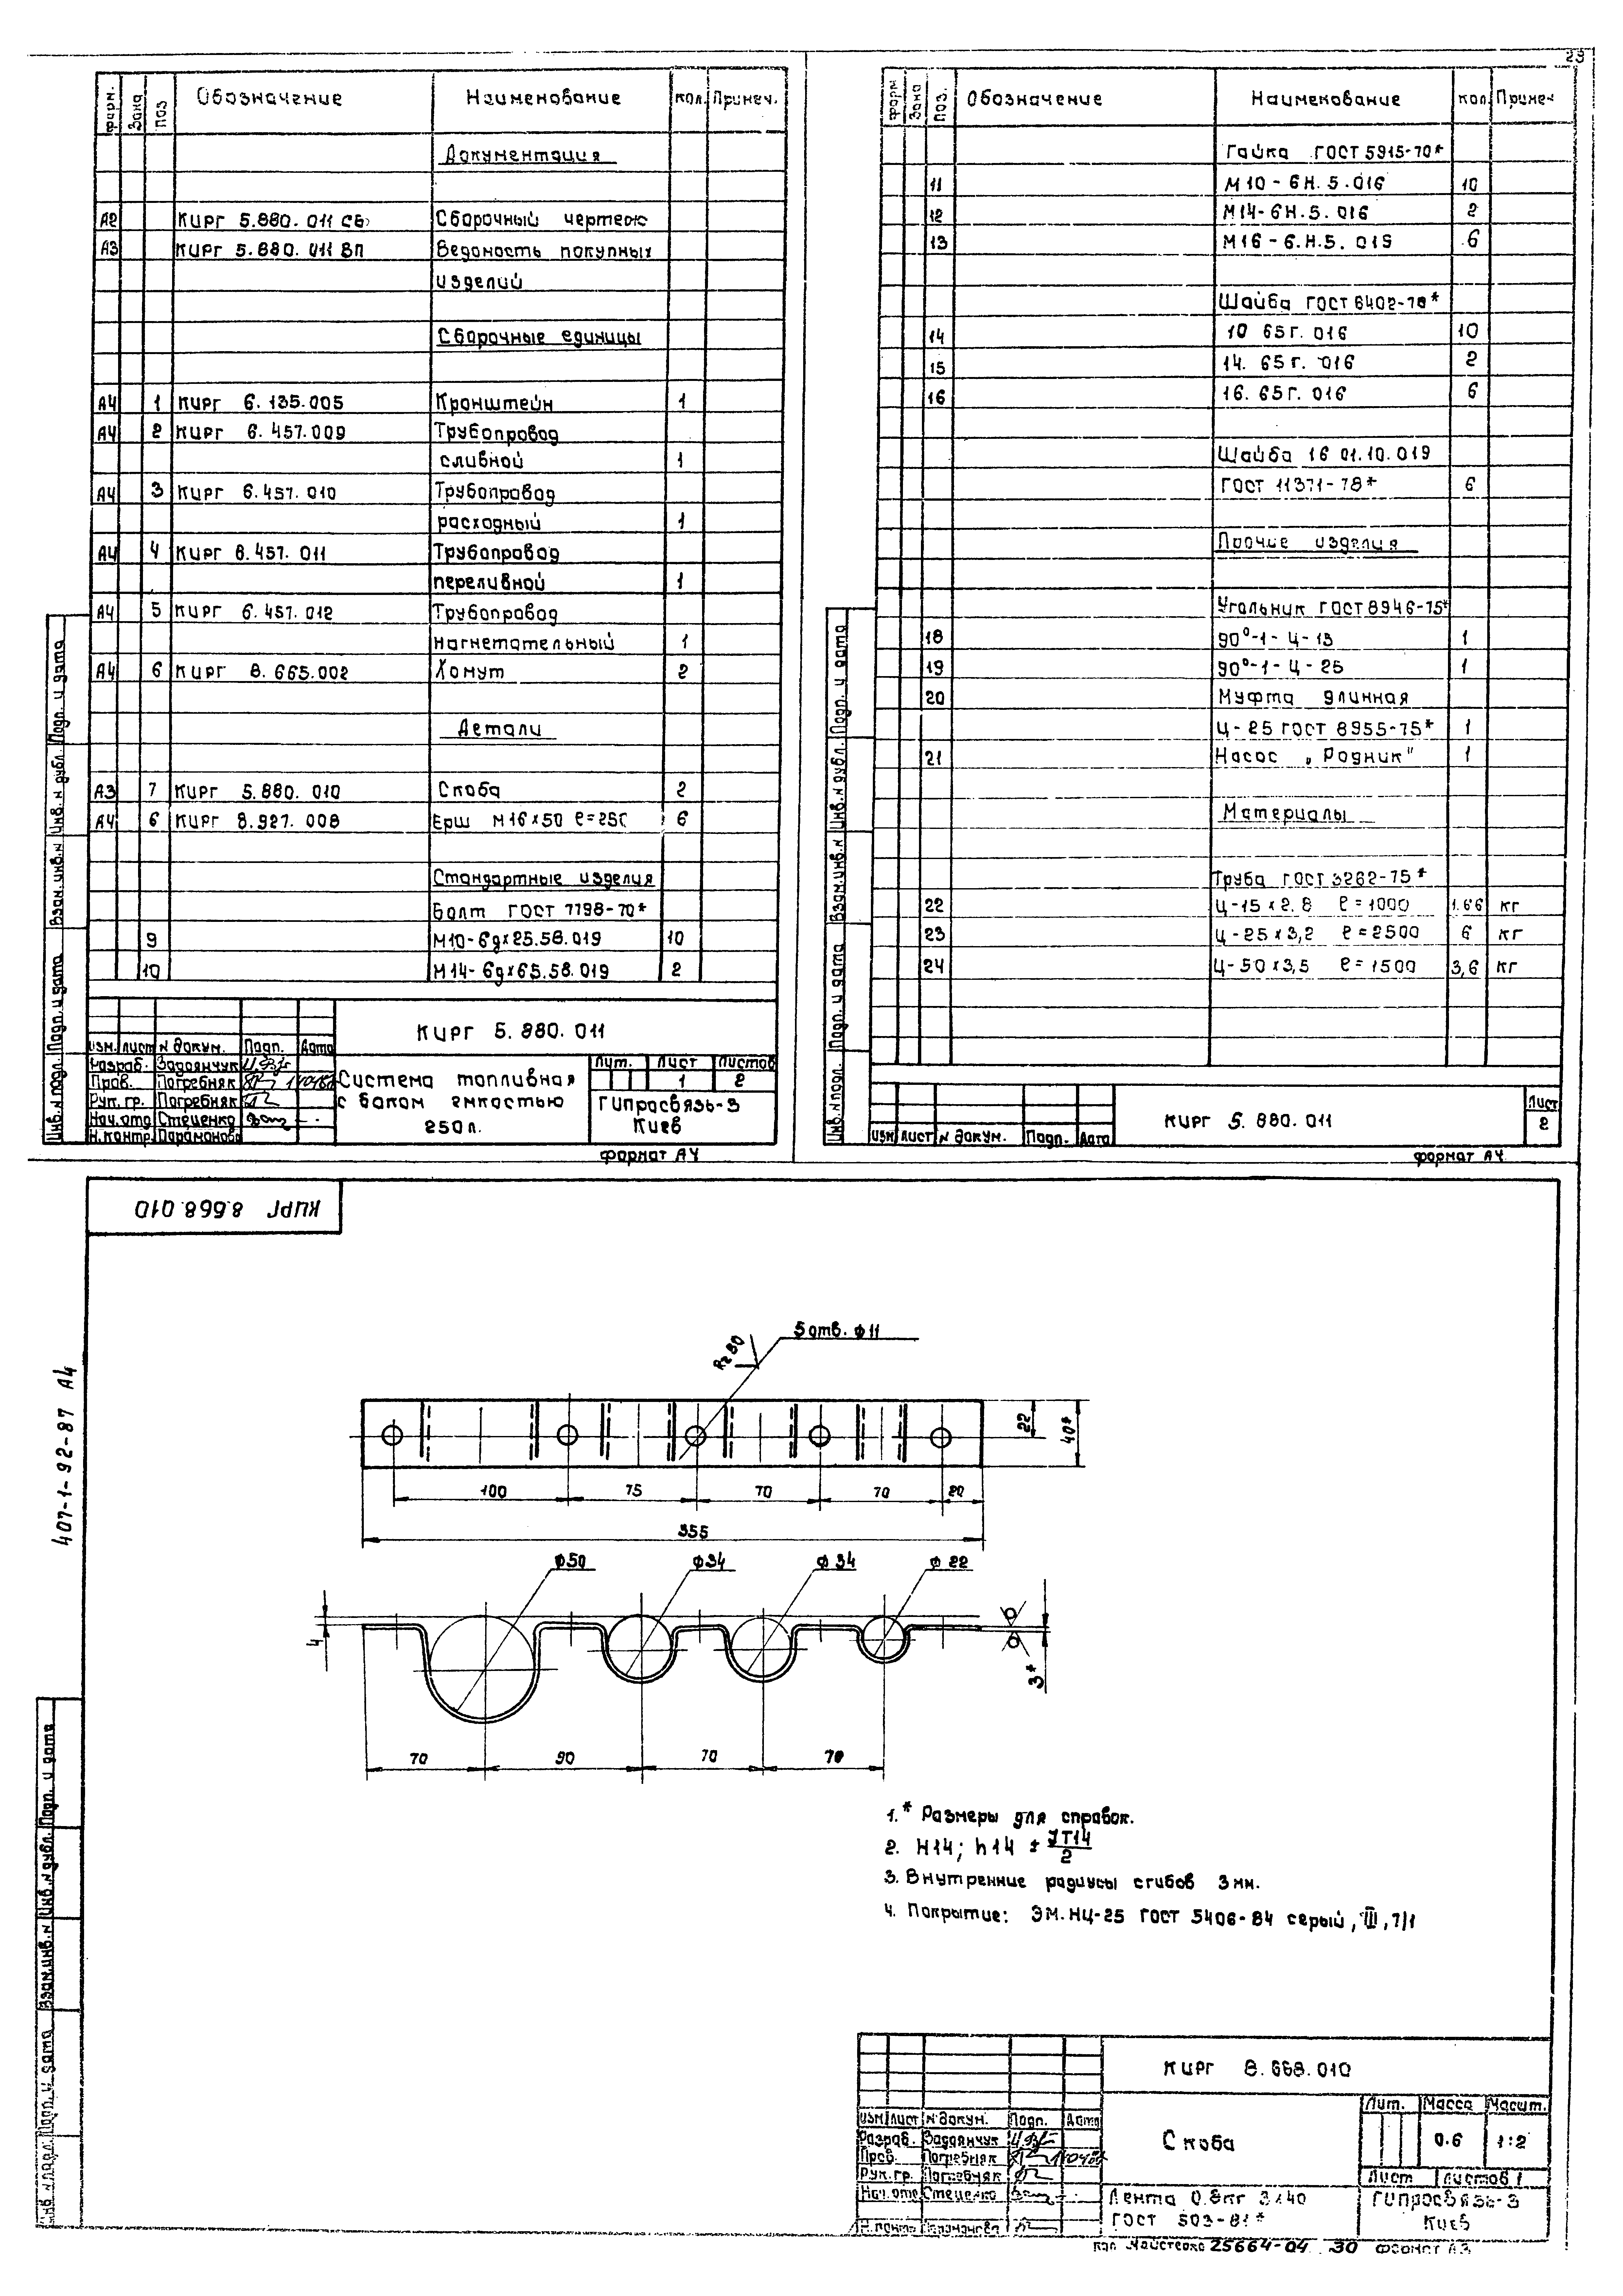 23
форм. Зона поз. Обозначение Наименование кол. Примеч.
Документация
А2 КИРГ 5.880.011 СБ Сборочный чертеж
А3 КИРГ 5.880.011 ВП Ведомость покупных
изделий
Сборочные единицы
А4 1 КИРГ 6.135.005 Кронштейн 1
А4 2 КИРГ 6.457.009 Трубопровод
сливной 1
А4 3 КИРГ 6.457.010 Трубопровод
расходный 1
А4 4 КИРГ 6.457.011 Трубопровод
переливной 1
А4 5 КИРГ 6.457.012 Трубопровод
нагнетательный 1
А4 6 КИРГ 8.665.002 Хомут 2
Детали
А3 7 КИРГ 5.880.010 Скоба 2
А4 6 КИРГ 8.927.008 Ерш М16х50 ℓ=250 6
Стандартные изделия
Болт ГОСТ 7798-70*
9 М10-6gх25.58.019 10
10 М14-6gх65.58.019 2
Изм. Лист N докум. Подп. Дата
Разраб. Задоянчук
Пров. Погребняк
Рук. гр. Погребняк
Нач. отд Стеценко
Н.контр. Парамонова
КИРГ 5.880.011
Система топливная
с баком емкостью
250л.
Лит. Лист Листов
1 2
ГИпросвязь-3
Киев
Формат А4
Инв. N подл. Подп. и дата Взам. инв. N Инв. N дубл. Подп. и дата
форм Зона поз. Обозначение Наименование кол Примеч
Гайка ГОСТ 5915-70*
11 М10-6Н.5.016 10
12 М14-6Н.5.016 2
13 М16-6.Н.5.019 6
Шайба ГОСТ 6402-70*
14 10 65Г.016 10
15 14. 65Г.016 2
16 16. 65Г.016 6
Шайба 16 01.10.019
ГОСТ 11371-78* 6
Прочие изделия
Угольник ГОСТ 8946-75*
18 90°-1-Ц-15 1
19 90°-1-Ц-25 1
20 Муфта длинная
Ц-25 ГОСТ 8955-75* 1
21 Насос „Родник" 1
Материалы
Труба ГОСТ 3262-75*
22 Ц-15х2.8 ℓ=1000 1.66 кг
23 Ц-25х3,2 ℓ=2500 6 кг
24 Ц-50х3,5 ℓ=1500 3,6 кг
Изм Лист N докум. Подп. Дата
КИРГ 5.880.011
Лист
2
Формат А4
Инв. N подл. Подп. и дата Взам. инв. N Инв. N дубл. Подп. и дата
КИРГ 8.668.010
407-1-92-87 А4
5 отв. ф11
Rz 80
22
40*
100 75 70 70 20
355
ф50 ф34 ф34 ф22
4
3*
70 90 70 70
1.* Размеры для справок.
2. Н14; h14 ± JT14/2
3. Внутренние радиусы сгибов 3мм.
4. Покрытие: ЭМ.НЦ-25 ГОСТ 5406-84 серый, III, 7/1
Изм Лист N докум. Подп. Дата
Разраб. Задоянчук
Пров. Погребняк
Рук. гр. Погребняк
Нач. отд Стеценко
Н. контр Парамонова
КИРГ 8.668.010
Скоба
Лит. Масса Масшт.
0.6 1:2
Лист Листов 1
Лента 0.8кп 3х40
ГОСТ 503-81*
ГИпросвязь-3
Киев
Инв. N подл. Подп. и дата Взам. инв. N Инв. N дубл. Подп. и дата
25664-04 30 Формат А3